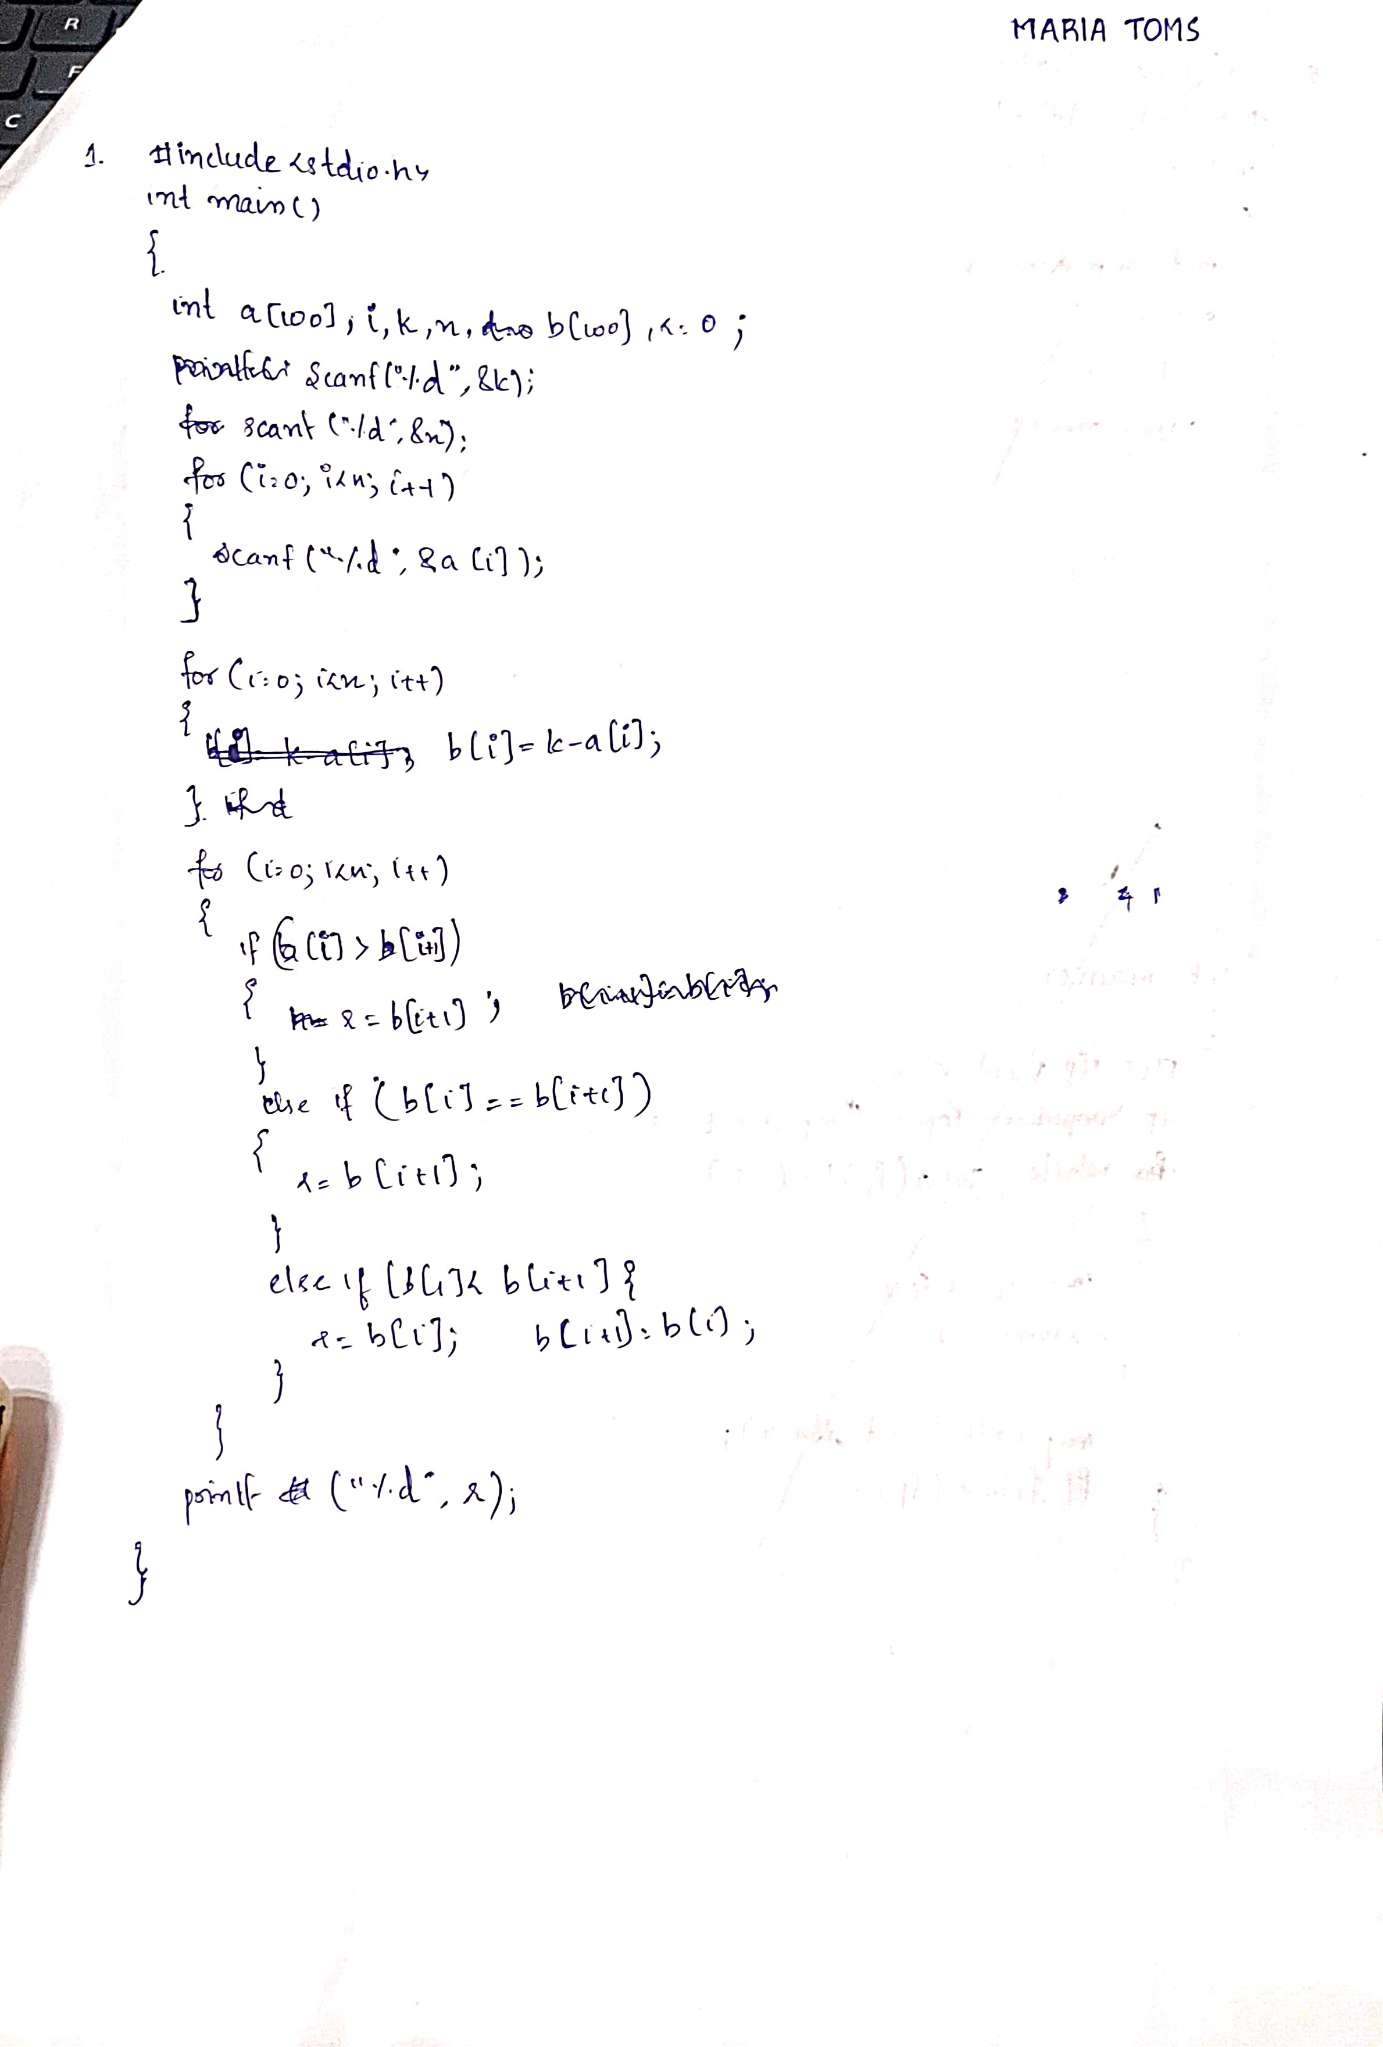 MARIA TOMS
1. #include <stdio.h>
int main()
{
int a[100], i, k, n, b[100], r=0;
scanf("%d", &k);
for scanf("%d", &n);
for (i=0; i<n; i++)
{
scanf("%d", &a[i]);
}
for (i=0; i<n; i++)
{
b[i]=k-a[i];
}
for (i=0; i<n; i++)
{
if (b[i]>b[i+1])
{
r=b[i+1];
}
else if (b[i]==b[i+1])
{
r=b[i+1];
}
else if (b[i]<b[i+1]{
r=b[i]; b[i+1]=b[i];
}
}
printf ("%d", r);
}
R
F
C